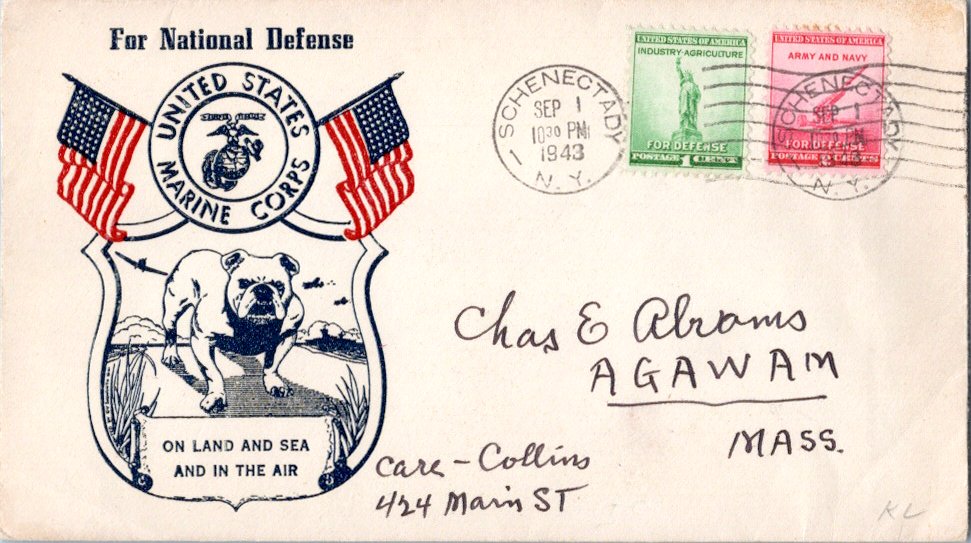 For National Defense
UNITED STATES
MARINE CORPS
ON LAND AND SEA
AND IN THE AIR
SCHENECTADY
SEP 1
10 30 PM
1943
1
N. Y.
UNITED STATES OF AMERICA
INDUSTRY-AGRICULTURE
FOR DEFENSE
POSTAGE 1 CENT
UNITED STATES OF AMERICA
ARMY AND NAVY
FOR DEFENSE
POSTAGE 2 CENTS
SCHENECTADY
SEP 1
N. Y.
Chas E Abrams
AGAWAM
MASS.
care - Collins
424 Main ST
KL